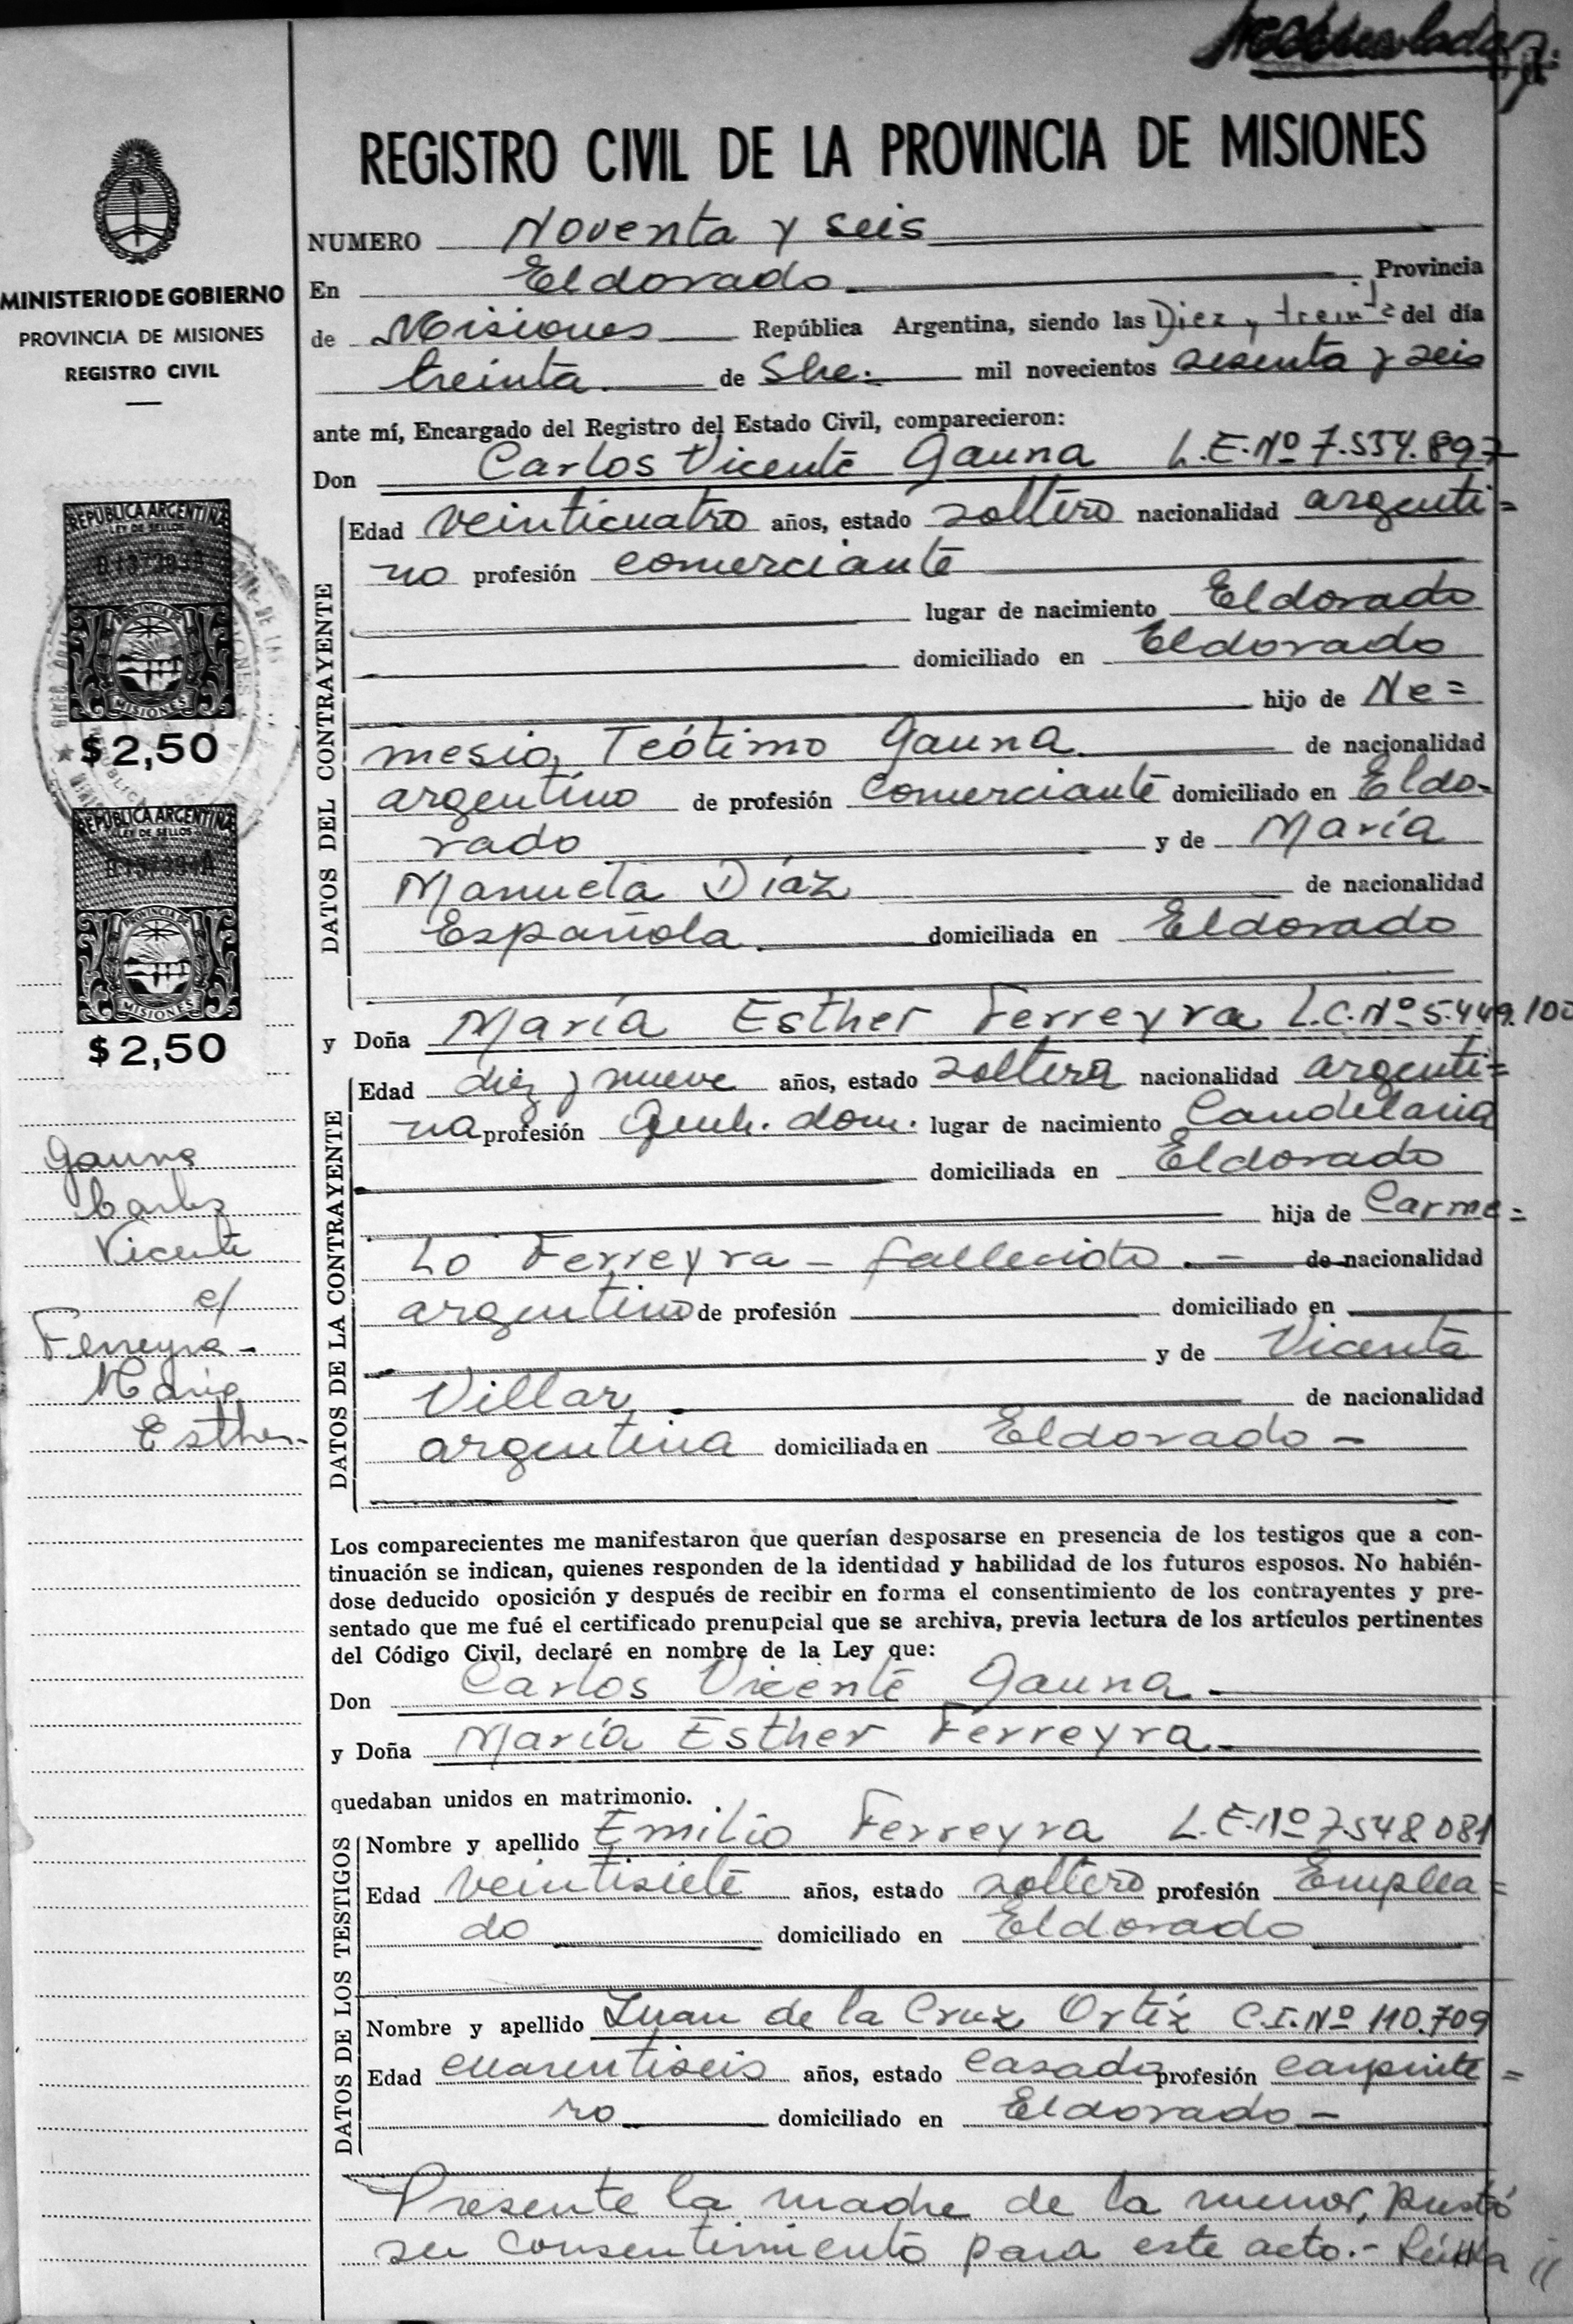 REGISTRO CIVIL DE LA PROVINCIA DE MISIONES
MINISTERIO DE GOBIERNO
PROVINCIA DE MISIONES
REGISTRO CIVIL
REPUBLICA ARGENTINA
LEY DE SELLOS
PROVINCIA DE
MISIONES
$2,50
REPUBLICA ARGENTINA
LEY DE SELLOS
PROVINCIA DE
MISIONES
$2,50
Gauna
Carlos
Vicente
c/
Ferreyra-
Maria
Esther.
NUMERO Noventa y seis
En Eldorado. Provincia
de Misiones República Argentina, siendo las Diez y treinta del día
treinta. de Sbe. mil novecientos sesenta y seis
ante mí, Encargado del Registro del Estado Civil, comparecieron:
Don Carlos Vicente Gauna L.E.Nº 7.554.897
DATOS DEL CONTRAYENTE
Edad veinticuatro años, estado soltero nacionalidad argenti=
no profesión comerciante
lugar de nacimiento Eldorado
domiciliado en Eldorado
hijo de Ne=
mesio Teótimo Gauna. de nacionalidad
argentino de profesión Comerciante domiciliado en Eldo-
rado y de María
Manuela Díaz de nacionalidad
Española. domiciliada en Eldorado
y Doña María Esther Ferreyra L.C.Nº 5.449.100
DATOS DE LA CONTRAYENTE
Edad diez y nueve años, estado soltera nacionalidad argenti=
na profesión Queh. dom. lugar de nacimiento Candelaria
domiciliada en Eldorado
hija de Carme=
lo Ferreyra - fallecido. - de nacionalidad
argentino de profesión domiciliado en
y de Vicenta
Villar. de nacionalidad
argentina domiciliada en Eldorado -
Los comparecientes me manifestaron que querían desposarse en presencia de los testigos que a con-
tinuación se indican, quienes responden de la identidad y habilidad de los futuros esposos. No habién-
dose deducido oposición y después de recibir en forma el consentimiento de los contrayentes y pre-
sentado que me fué el certificado prenupcial que se archiva, previa lectura de los artículos pertinentes
del Código Civil, declaré en nombre de la Ley que:
Don Carlos Vicente Gauna.
y Doña María Esther Ferreyra.
quedaban unidos en matrimonio.
DATOS DE LOS TESTIGOS
Nombre y apellido Emilio Ferreyra L.E.Nº 7.548.081
Edad veintisiete años, estado soltero profesión Emplea=
do domiciliado en Eldorado
Nombre y apellido Juan de la Cruz Ortíz C.I.Nº 110.709
Edad cuarentiseis años, estado casado profesión carpinte=
ro domiciliado en Eldorado -
Presente la madre de la menor, prestó
su consentimiento para este acto.-